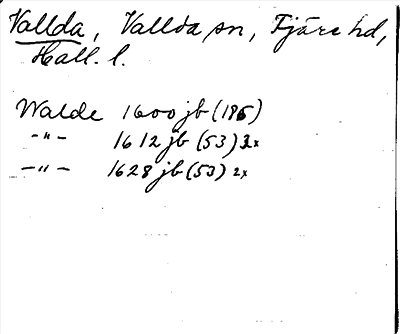 Vallda, Vallda sn, Fjäre hd,
Hall. l.
Walde 1600 jb (186)
-"- 1612 jb (53) 3x
-"- 1628 jb (53) 2x